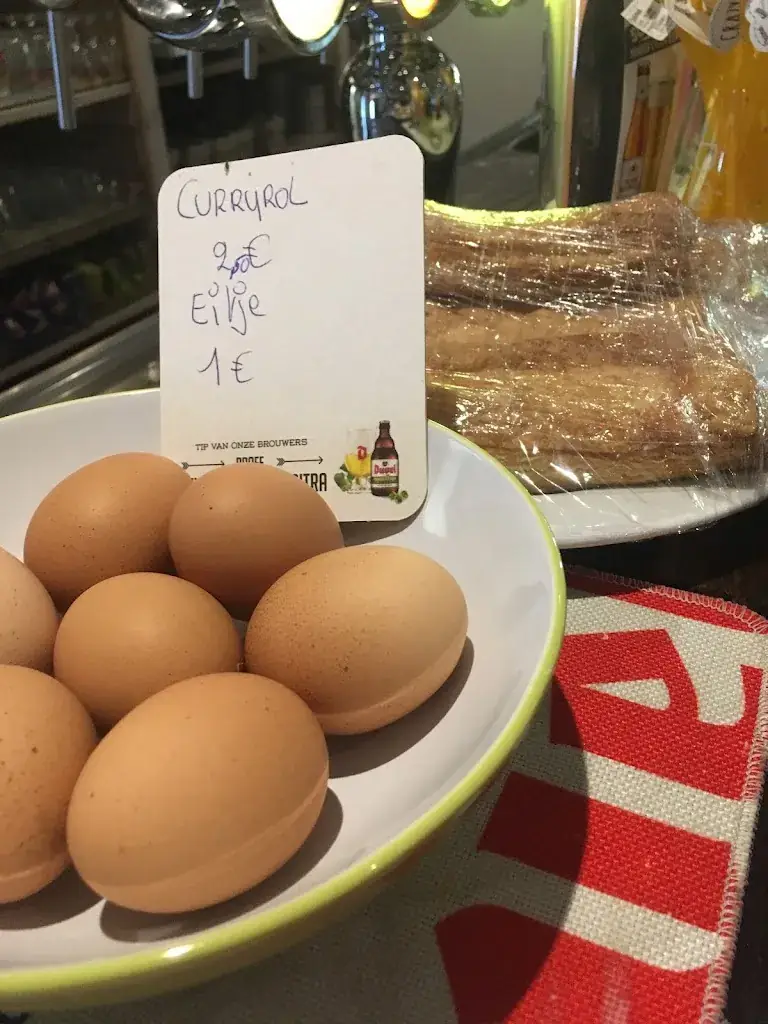 CURRYROL
2,50€
Eitje
1 €
TIP VAN ONZE BROUWERS
Duvel